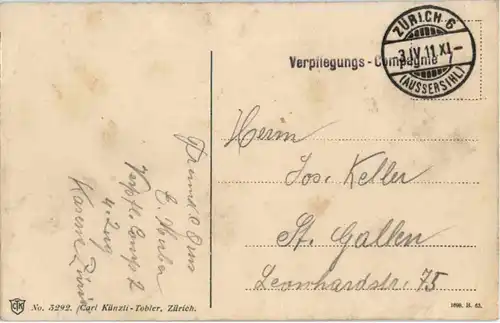 ZÜRICH 6
3.IV.11.XI-
(AUSSERSIHL)
Verpflegungs-Compagnie 7
Herrn
Jos. Keller
St. Gallen
Leonhardstr. 75
E. Huber
Verpfl. Comp. 7
4. Zug
Kaserne Zürich
No. 5292. Carl Künzli-Tobler, Zürich.